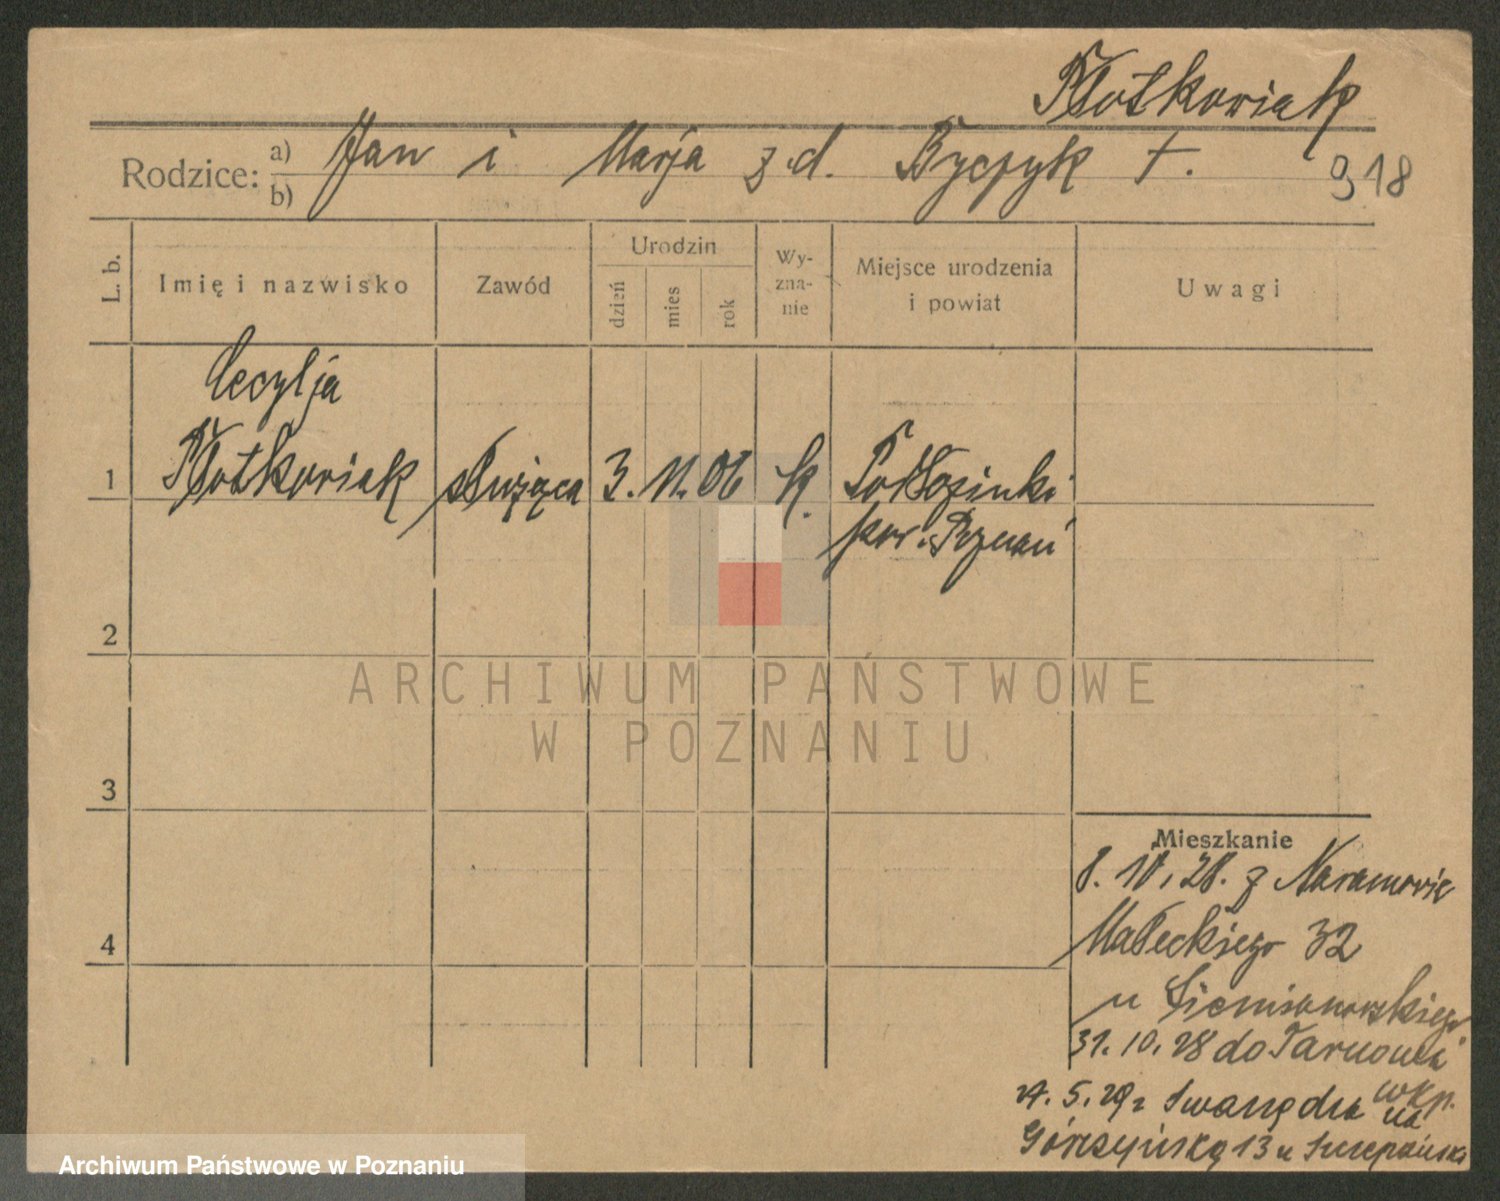 Płotkowiak
Rodzice: a) b) Jan i Marja z d. Byczyk †.
918
L. b.
Imię i nazwisko
Zawód
Urodzin
dzień
mies
rok
Wy-
zna-
nie
Miejsce urodzenia
i powiat
Uwagi
Cecylja
1 Płotkowiak służąca 3. 11. 06 k.
pow. Poznań
2
3
4
ARCHIWUM PAŃSTWOWE
W POZNANIU
Mieszkanie
8. 10. 28. z Naramowic
Małeckiego 32
u
31. 10. 28 do Tarnowa
wkp.
5. 29 z Swarzędza na
Górczyńską 13 u
Archiwum Państwowe w Poznaniu